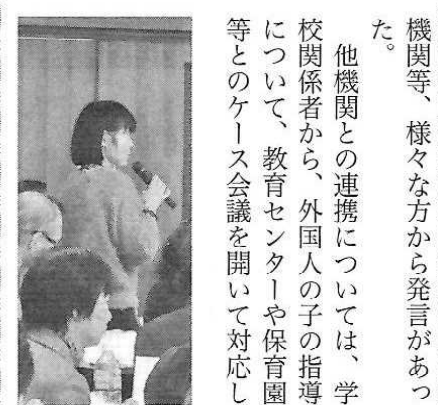 機関等、様々な方から発言があっ
た。
　他機関との連携については、学
校関係者から、外国人の子の指導
について、教育センターや保育園
等とのケース会議を開いて対応し